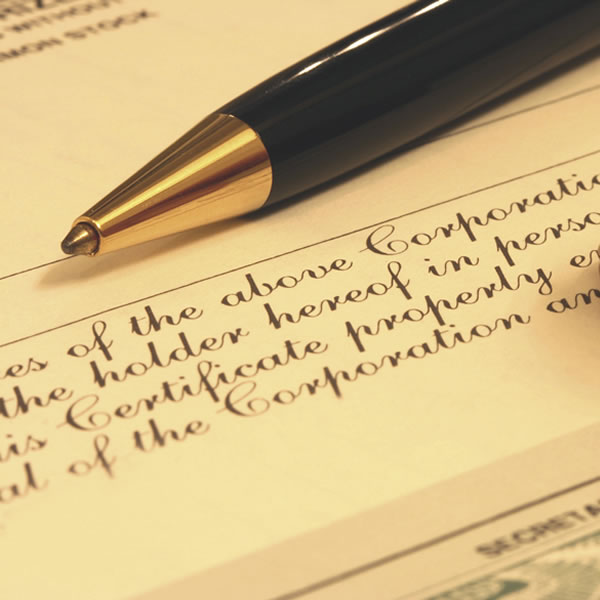 WITHOUT
MON STOCK
es of the above Corporatio
the holder hereof in perso
is Certificate properly e
al of the Corporation an
SECRETA